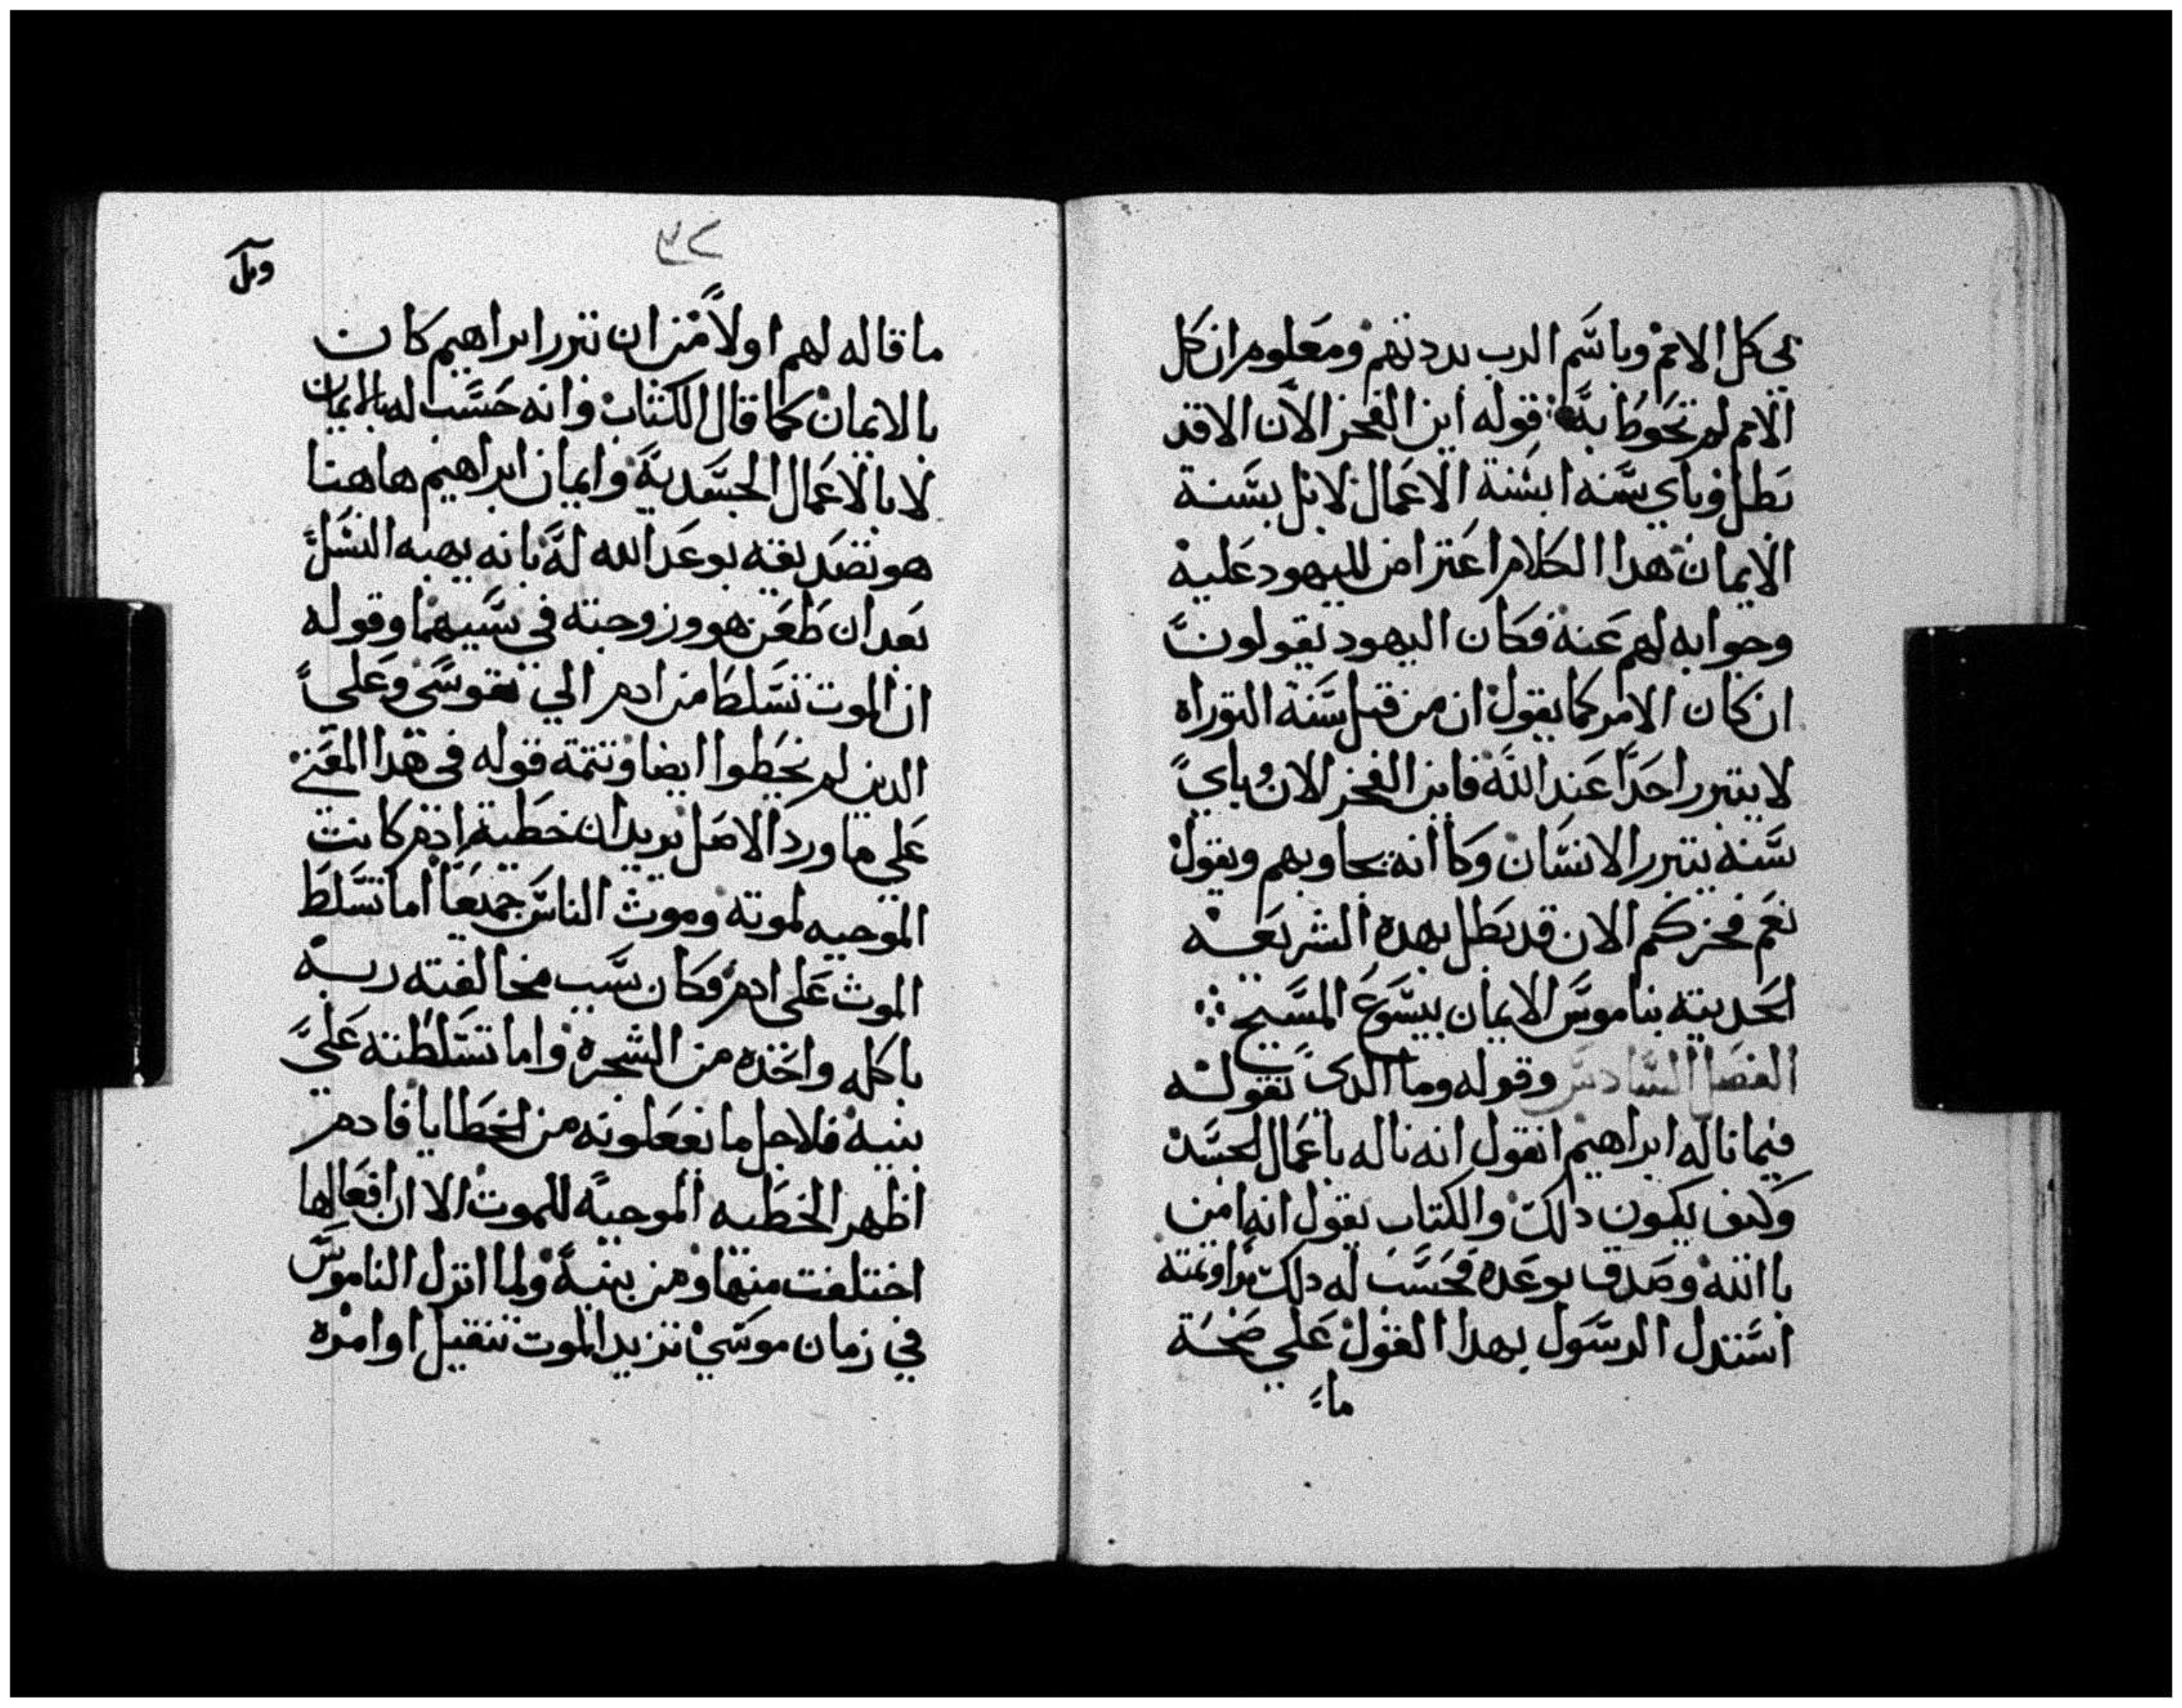 بي كل الامم وباسم الرب برددتهم ومعلوم ان كل
الامم لم تحوط به قوله اين الفخر الان الا قد
بطل وباي سنه ابسنة الاعمال لا بل بسنة
الايمان هدا الكلام اعتراض لليهود عليه
وجوابه لهم عنه فكان اليهود يقولون
ان كان الامر كما يقول ان من قبل سنة التوراه
لا يتبرر احدا عند الله فاين الفخر الان وباي
سنه يتبرر الانسان وكاانه يجاوبهم ويقول
نعم فخركم الان قد بطل بهده الشريعه
الحديته بناموس الايمان بيسوع المسيح
الفصل السادس وقوله وما الدى نقوله
فيما ناله ابراهيم انقول انه ناله باعمال الجسد
وكيف يكون دلك والكتاب يقول انه امن
باالله وصدق بوعده فحسب له دلك براوتمته
استدل الرسول بهدا القول على صحة
ما
٣٢
وبل
ما قاله لهم اولا من ان تبرر ابراهيم كان
بالايمان كما قال الكتاب وانه حسب له بالايمان
لا بالاعمال الجسديه وايمان ابراهيم هاهنا
هو تصديقه بوعد الله له بانه يهبه النسل
بعد ان طعن هو وزوجته في سيهما وقوله
ان الموت تسلط من ادم الي موسى وعلى
الدين لم يخطوا ايضا وتتمة قوله فى هدا المعنى
علي ما ورد الاصل يريد ان خطية ادم كانت
الموجبه لموته وموت الناس جميعا اما تسلط
الموت على ادم فكان سبب مخالفته ربه
باكله واخده من الشجره واما تسلطته على
بنيه فلاجل ما يفعلونه من الخطايا فادم
اظهر الخطيه الموجبه للموت الا ان افعالها
اختلفت منها ومن بنيه ولما انزل الناموس
في زمان موسي تزيد الموت تنقيل اوامره